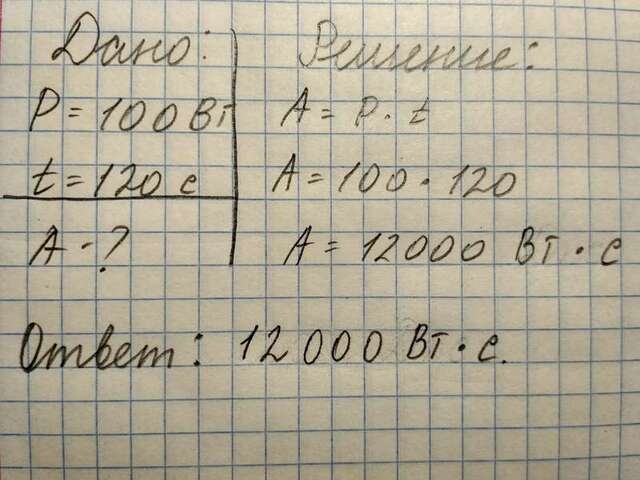 Дано:
P = 100 Вт
t = 120 с
A - ?
Решение:
A = P · t
A = 100 · 120
A = 12000 Вт · с
Ответ: 12 000 Вт · с.